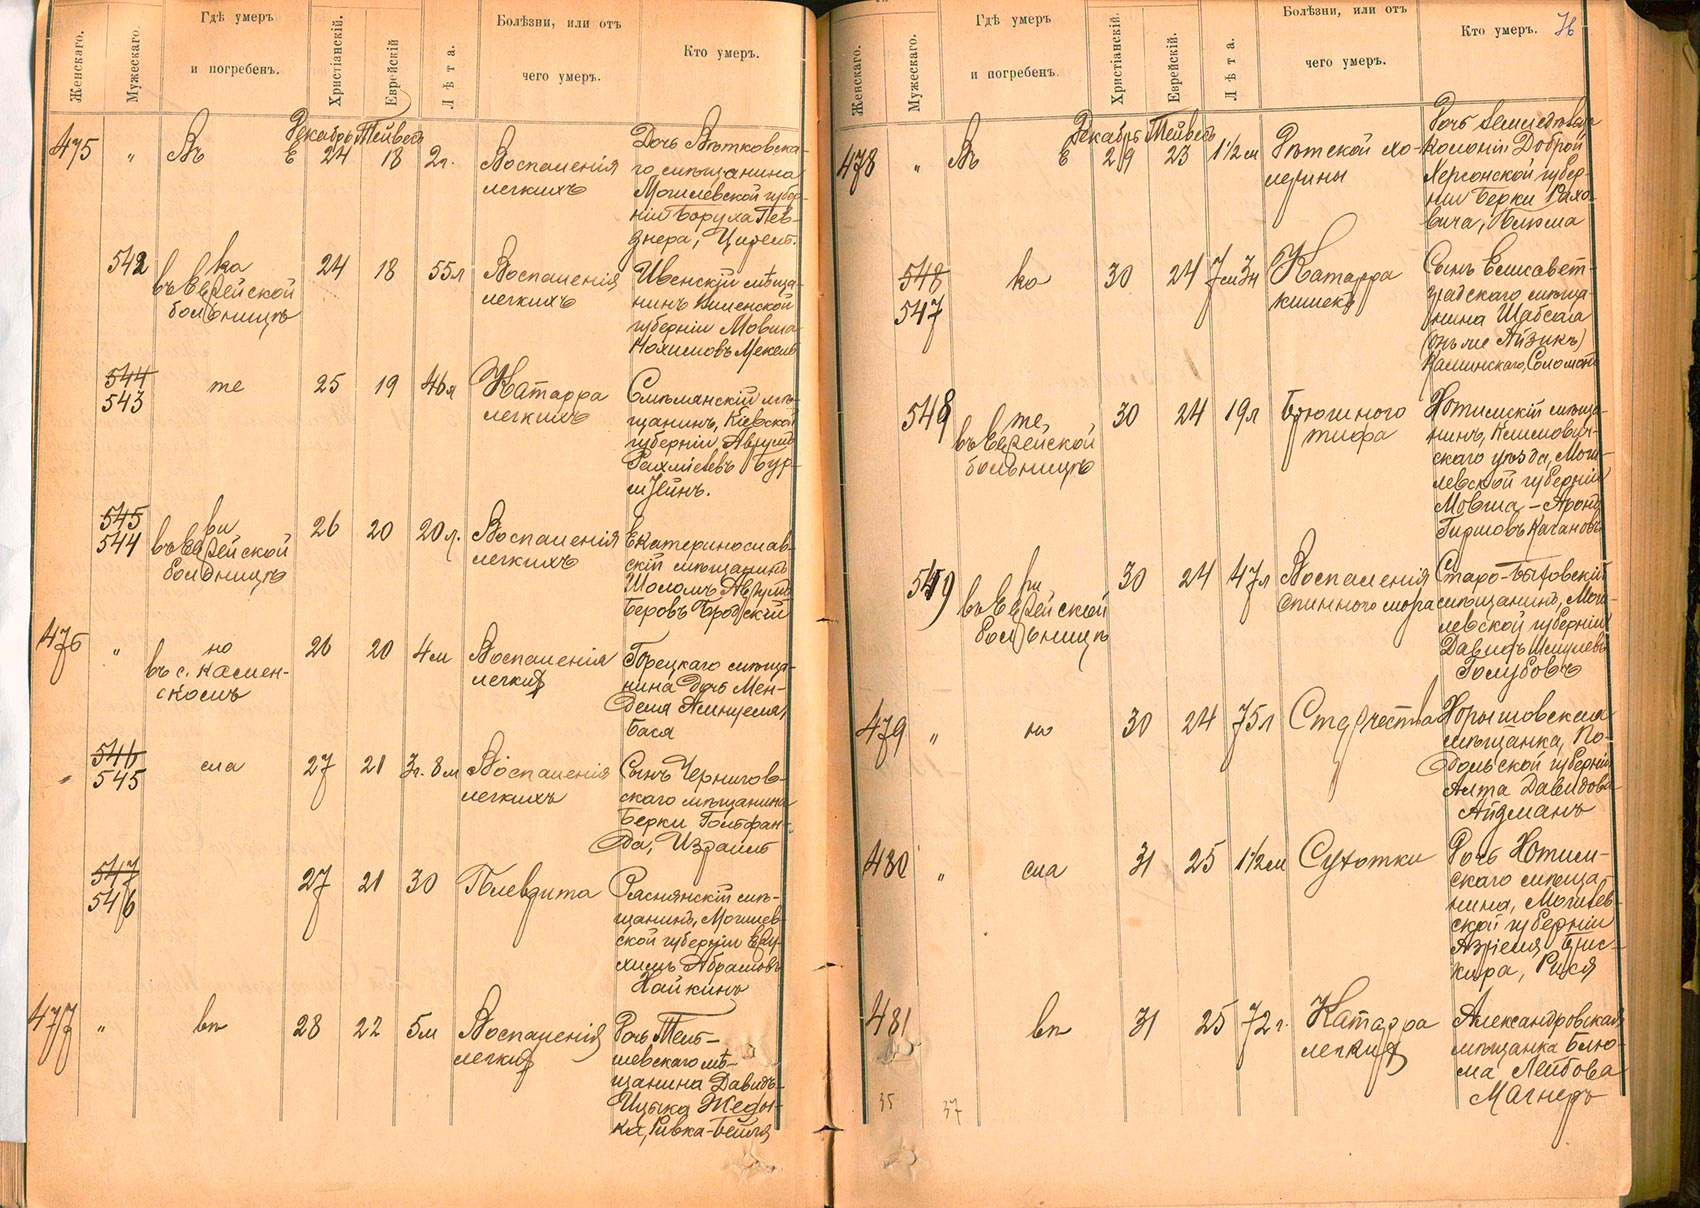 Женскаго.
Мужескаго.
Гдѣ умеръ
и погребенъ.
Христіанскій.
Еврейскій
Лѣта.
Болѣзни, или отъ
чего умеръ.
Кто умеръ.
Декабрь Тейвесъ
475 " Въ Е 24 18 2г.
Воспаленія
легкихъ
Дочь Вѣтковска-
го мѣщанина
Могилевской губер-
ніи Боруха Пев-
знера,
542
ка
въ Еврейской
больницѣ
24 18 55л
Воспаленія
легкихъ
мѣща-
нинъ Виленской
губерніи Мовша
544
543
те
25 19
Катарра
легкихъ
мѣ-
щанинъ, Кіевской
губерніи
545
544
ри
въ Еврейской
больницѣ
26 20 20л.
Воспаленія
легкихъ
Екатеринослав-
скій мѣщанинъ
Шоломъ
Беровъ Бродскій
476 "
но
въ с. Камен-
скомъ
26 20 4м
Воспаленія
легкихъ
Горецкаго мѣща-
нина дочь Мен-
деля
Бася
546
545
сла
27 21 3г. 8м
Воспаленія
легкихъ
Сынъ Чернигов-
скаго мѣщанина
Берки
да, Израиль
547
546
27 21 30
Плеврита
Ряснянскій мѣ-
щанинъ, Могилев-
ской губерніи Еру-
химъ Абрамовъ
Хайкинъ
477 "
въ
28 22 5м
Воспаленія
легкихъ
Дочь Тель-
шевскаго мѣ-
щанина Давидъ-
Ицыка
ка, Ривка-Бейля
Женскаго.
Мужескаго.
Гдѣ умеръ
и погребенъ.
Христіанскій.
Еврейскій.
Лѣта.
Болѣзни, или отъ
чего умеръ.
Кто умеръ.
76
Декабрь Тейвесъ
478 " Въ Е 29 23 1½м
Дѣтской хо-
лерины
Дочь
колоніи Доброй
Херсонской губер-
ніи Берки Рахо-
вича, Блюма
548
547
ка
30 24 7м
Катарра
кишекъ
Сынъ Елисавет-
градскаго мѣща-
нина Шабсая
(онъ же Айзикъ)
548
те,
въ Еврейской
больницѣ
30 24 19л
Брюшного
тифа
Хотимскій мѣща-
нинъ, Климович-
скаго уѣзда, Моги-
левской губерніи
Мовша-Аронъ
Гиршовъ Качановъ
549
ри
въ Еврейской
больницѣ
30 24 47л
Воспаленія
спинного мозга
Старо-Быховскій
мѣщанинъ, Моги-
левской губерніи
Давидъ Шмулевъ
Голубовъ
479 "
но
30 24 75л
Старчества
мѣщанка, По-
дольской губерніи
Давидова
480 "
сла
31 25 1½м
Сухотки
Дочь Хотим-
скаго мѣща-
нина, Могилев-
ской губерніи
Азріеля
481
въ
31 25 72г.
Катарра
легкихъ
Александровская
мѣщанка Блю-
ма Лейбова
Магнеръ
35
37